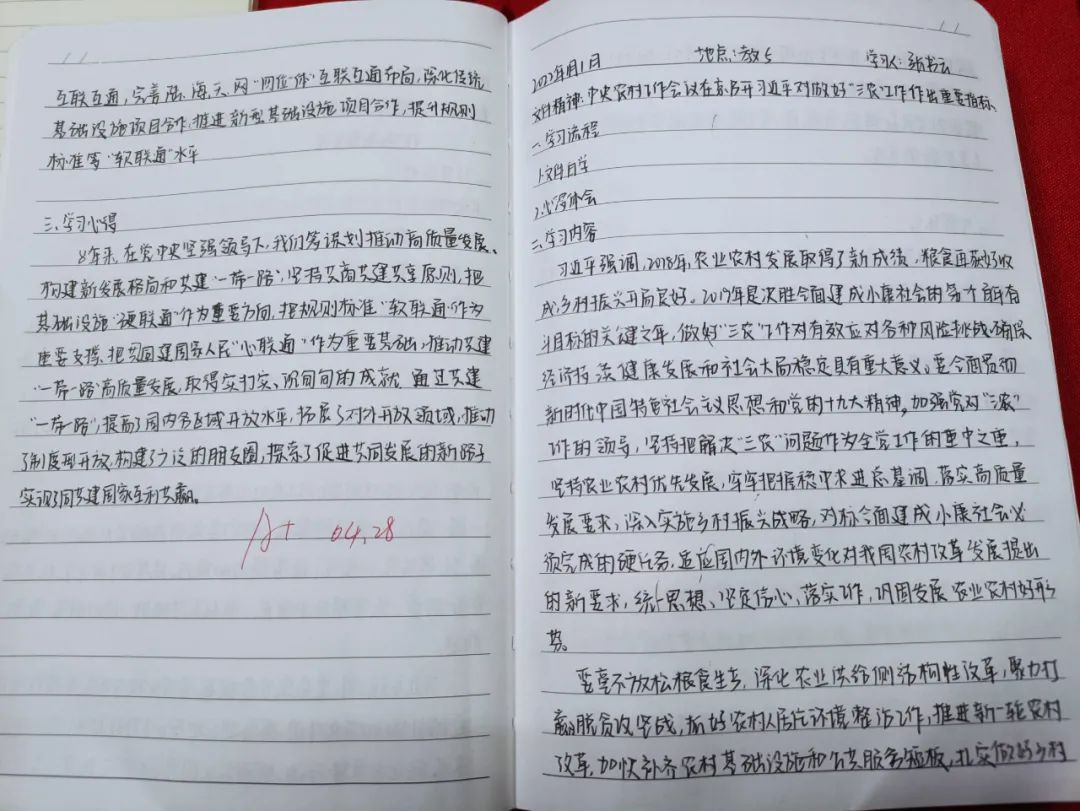 互联互通,完善陆、海、天、网"四位一体"互联互通布局,深化传统
基础设施项目合作,推进新型基础设施项目合作,提升规则
标准等"软联通"水平
三、学习心得
8年来,在党中央坚强领导下,我们统筹谋划推动高质量发展、
构建新发展格局和共建"一带一路",坚持共商共建共享原则,把
基础设施"硬联通"作为重要方向,把规则标准"软联通"作为
重要支撑,把共同建国家人民"心联通"作为重要基础,推动共建
"一带一路"高质量发展,取得实打实、沉甸甸的成就。通过共建
"一带一路",提高了国内各区域开放水平,拓展了对外开放领域,推动
了制度型开放,构建了广泛的朋友圈,探索了促进共同发展的新路子
实现了同共建国家互利共赢。
A+ 04.28
2022年 月1日 地点:教5 学习人:
文件精神:中央农村工作会议在京召开习近平对做好"三农"工作作出重要指标.
一、学习流程
1.文件自学
2.心得体会
二、学习内容
习近平强调,2018年,农业农村发展取得了新成绩,粮食再获好收
成,乡村振兴开局良好。2019年是决胜全面建成小康社会的第一个百年奋
斗目标的关键之年,做好"三农"工作对有效应对各种风险挑战、确保
经济持续健康发展和社会大局稳定具有重大意义。要全面贯彻
新时代中国特色社会主义思想和党的十九大精神,加强党对"三农"
工作的领导,坚持把解决"三农"问题作为全党工作的重中之重,
坚持农业农村优先发展,牢牢把握稳中求进总基调,落实高质量
发展要求,深入实施乡村振兴战略,对标全面建成小康社会必
须完成的硬任务,适应国内外环境变化对我国农村改革发展提出
的新要求,统一思想、坚定信心、落实工作,巩固发展农业农村好形
势。
要毫不放松粮食生产,深化农业供给侧结构性改革,聚力打
赢脱贫攻坚战,抓好农村人居环境整治工作,推进新一轮农村
改革,加快补齐农村基础设施和公共服务短板,扎实做好乡村